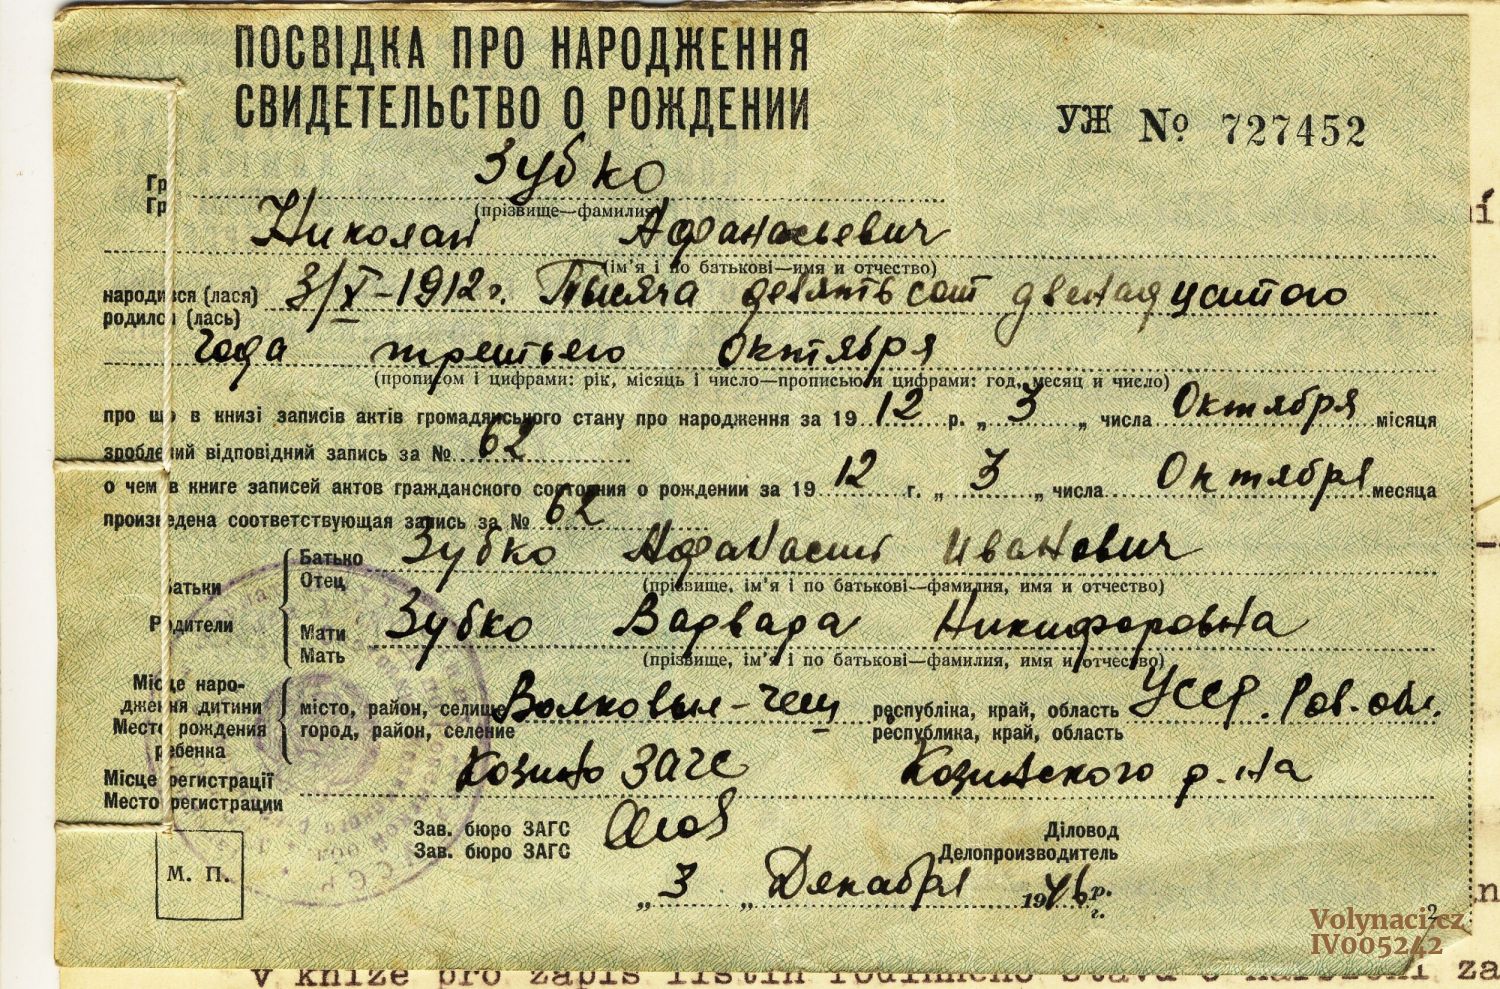 ПОСВІДКА ПРО НАРОДЖЕННЯ
СВИДЕТЕЛЬСТВО О РОЖДЕНИИ
УЖ № 727452
Гр
Гр
Зубко
(прізвище—фамилия)
Николай Афанасьевич
(ім'я і по батькові—имя и отчество)
народився (лася)
родился (лась)
3/X-1912г. Тысяча девятьсот двенадцатого
года третьего октября
(прописом і цифрами: рік, місяць і число—прописью и цифрами: год, месяц и число)
про що в книзі записів актів громадянського стану про народження за 1912 р. „ 3 „ числа Октября місяця
зроблений відповідний запись за № 62
о чем в книге записей актов гражданского состояния о рождении за 1912 г. „ 3 „ числа Октября месяца
произведена соответствующая запись за № 62
Батьки
Родители
Батько
Отец
Зубко Афанасий Иванович
(прізвище, ім'я і по батькові—фамилия, имя и отчество)
Мати
Мать
Зубко Варвара Никифоровна
(прізвище, ім'я і по батькові—фамилия, имя и отчество)
Місце народження дитини
Место рождения ребенка
місто, район, селище
город, район, селение
Волковые-чеш
республіка, край, область
республика, край, область
УССР. Ров. обл.
Місце регистрації
Место регистрации
Козино ЗАГС Козинского р-на
Зав. бюро ЗАГС
Зав. бюро ЗАГС
Діловод
Делопроизводитель
М. П.
„ 3 „ Декабря 1946 р.
г.
2
Volynaci.cz
IV005242
v knize pro zápis listin rodinného stavu o narození za